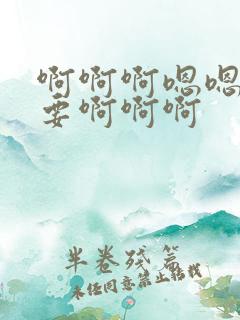 啊啊啊嗯嗯
要啊啊啊
半卷残篇
未经同意禁止转载